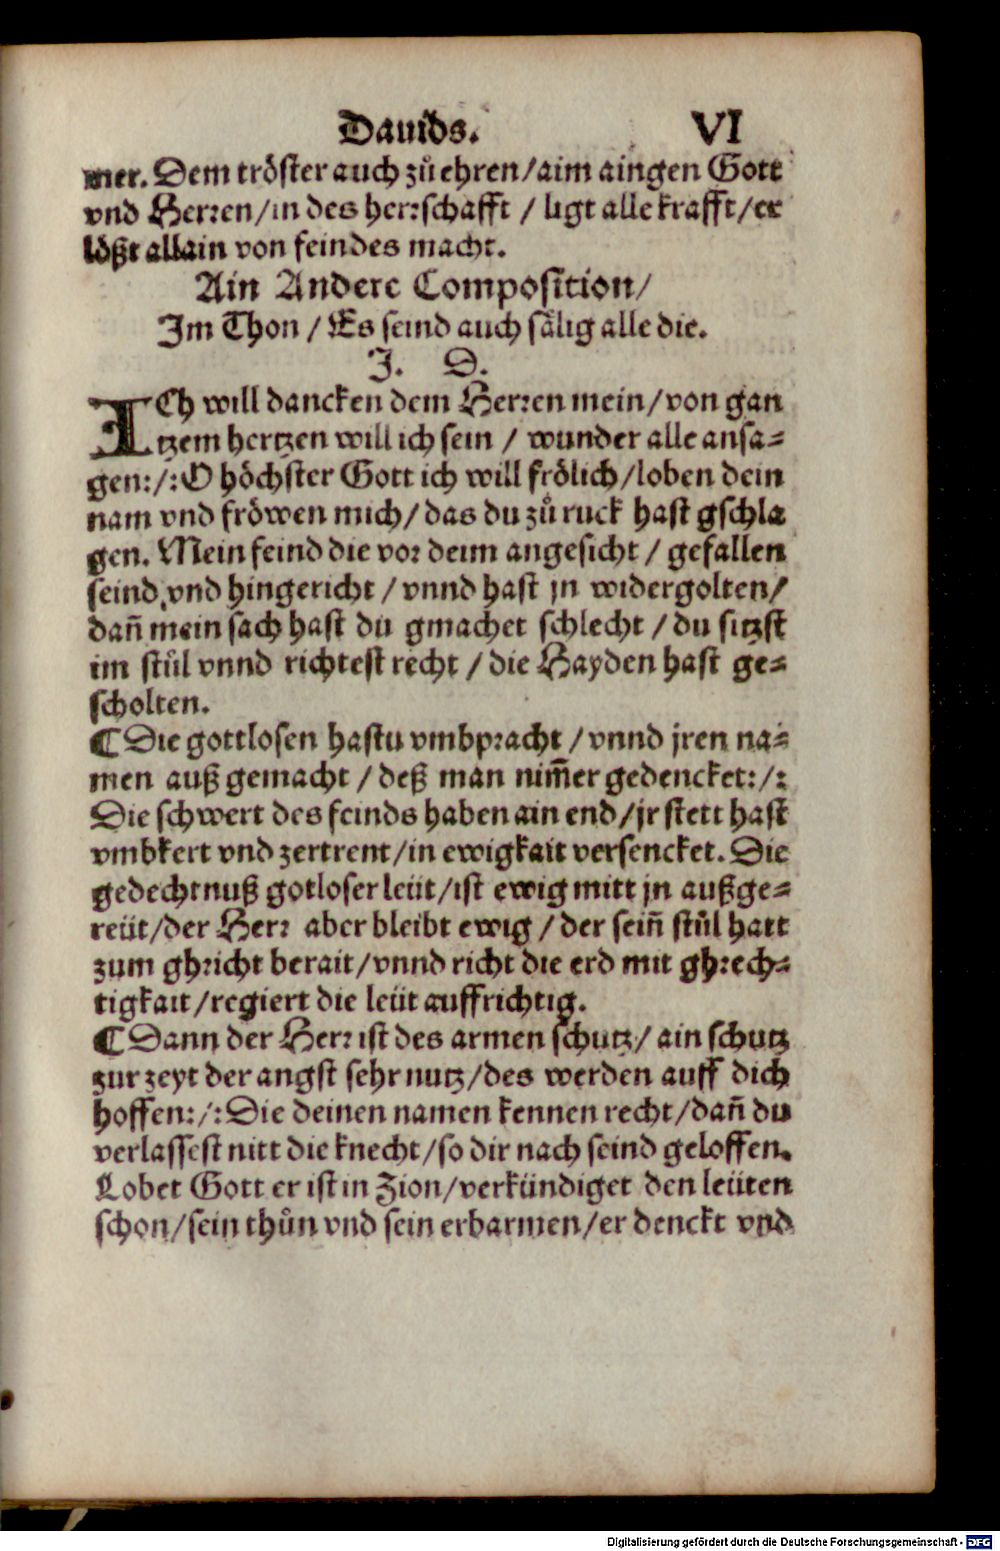 Dauids. VI
mer. Dem tröster auch zů ehren/aim aingen Gott
vnd Herren/in des herrschafft / ligt alle krafft/er
lößt allain von feindes macht.
Ain Andere Composition/
Im Thon / Es seind auch sälig alle die.
J. D.
ICh will dancken dem Herren mein/von gan
tzem hertzen will ich sein / wunder alle ansa⸗
gen:/:O höchster Gott ich will frölich/loben dein
nam vnd fröwen mich/das du zů ruck hast gschla
gen. Mein feind die vor deim angesicht / gefallen
seind vnd hingericht / vnnd hast jn widergolten/
dañ mein sach hast du gmachet schlecht / du sitzst
im stůl vnnd richtest recht / die Hayden hast ge⸗
scholten.
¶ Die gottlosen hastu vmbpracht / vnnd jren na⸗
men auß gemacht / deß man nim̃er gedencket:/:
Die schwert des feinds haben ain end/jr stett hast
vmbkert vnd zertrent/in ewigkait versencket. Die
gedechtnuß gotloser leüt/ist ewig mitt jn außge⸗
reüt/der Herr aber bleibt ewig / der sein̄ stůl hatt
zum ghricht berait/vnnd richt die erd mit ghrech⸗
tigkait/regiert die leüt auffrichtig.
¶ Dann der Herr ist des armen schutz/ ain schutz
zur zeyt der angst sehr nutz/des werden auff dich
hoffen:/:Die deinen namen kennen recht/dañ du
verlassest nitt die knecht/so dir nach seind geloffen.
Lobet Gott er ist in Zion/verkündiget den leüten
schon/sein thůn vnd sein erbarmen/er denckt vnd
Digitalisierung gefördert durch die Deutsche Forschungsgemeinschaft - DFG